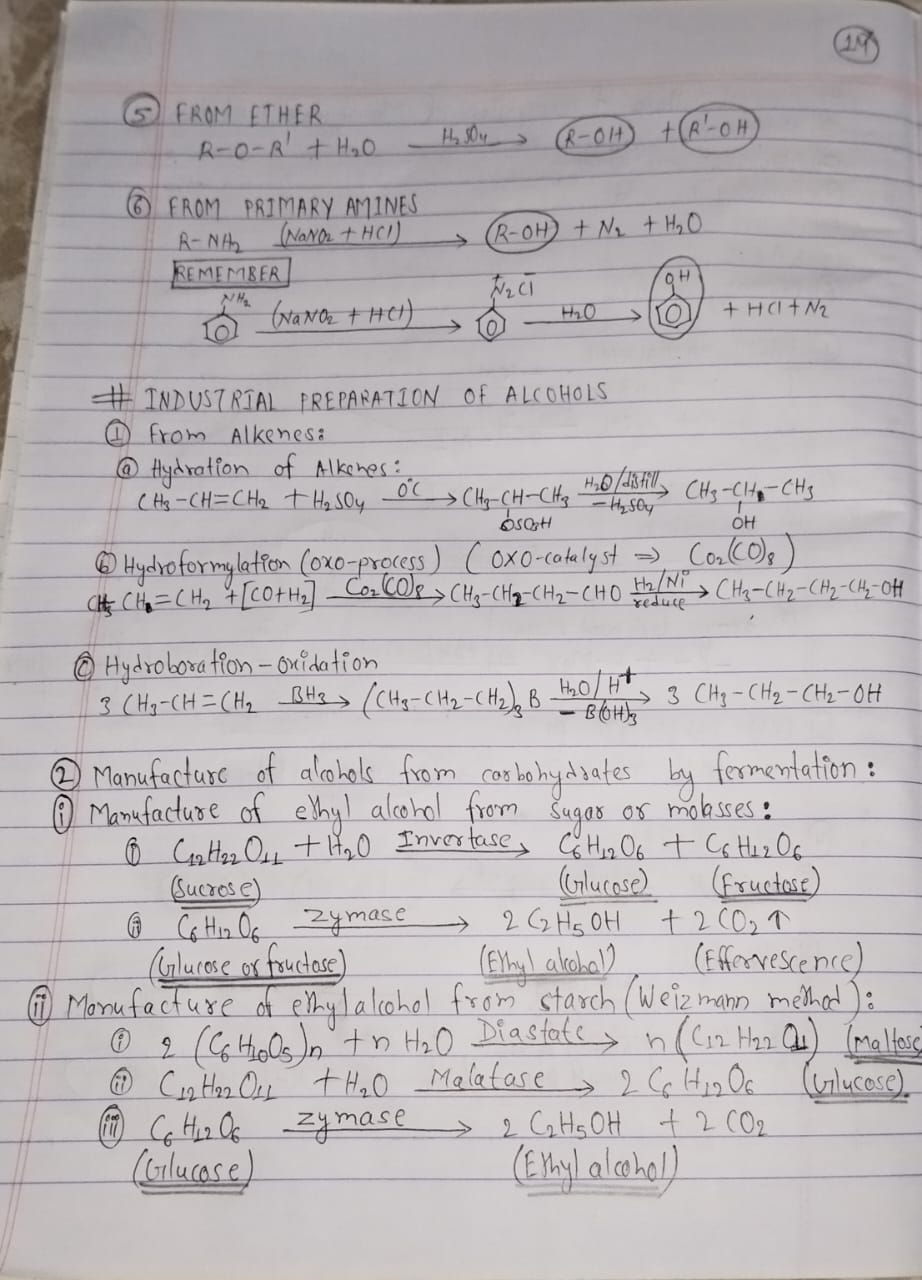 19
5 FROM ETHER
R-O-R' + H2O H2SO4→ R-OH + R'-OH
6 FROM PRIMARY AMINES
R-NH2 (NaNO2 + HCl)→ R-OH + N2 + H2O
REMEMBER
NH2 (NaNO2 + HCl)→ N2+Cl- H2O→ OH + HCl + N2
# INDUSTRIAL PREPARATION OF ALCOHOLS
1 From Alkenes:
a Hydration of Alkenes:
CH3-CH=CH2 + H2SO4 0°C→ CH3-CH-CH3 H2O/distill→ -H2SO4 CH3-CH-CH3
OSO3H OH
b Hydroformylation (oxo-process) (OXO-catalyst ⇒ Co2(CO)8)
CH2=CH2 + [CO+H2] Co2(CO)8→ CH3-CH2-CH2-CHO H2/Ni→ reduce CH3-CH2-CH2-CH2-OH
c Hydroboration-oxidation
3 CH3-CH=CH2 BH3→ (CH3-CH2-CH2)3B H2O/H+→ -B(OH)3 3 CH3-CH2-CH2-OH
2 Manufacture of alcohols from carbohydrates by fermentation:
i Manufacture of ethyl alcohol from sugar or molasses:
i C12H22O11 + H2O Invertase→ C6H12O6 + C6H12O6
(Sucrose) (Glucose) (Fructose)
ii C6H12O6 zymase→ 2 C2H5OH + 2 CO2↑
(Glucose or fructose) (Ethyl alcohol) (Effervescence)
ii Manufacture of ethyl alcohol from starch (Weizmann method):
i 2 (C6H10O5)n + n H2O Diastate→ n(C12H22O11) (Maltose
ii C12H22O11 + H2O Malatase→ 2 C6H12O6 (Glucose)
iii C6H12O6 zymase→ 2 C2H5OH + 2 CO2
(Glucose) (Ethyl alcohol)